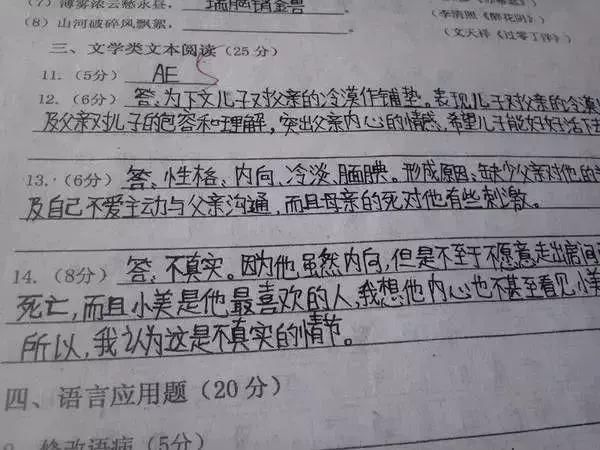 (7) 薄雾浓云愁永昼，瑞脑销金兽 (李清照《醉花阴》)
(8) 山河破碎风飘絮， (文天祥《过零丁洋》)
三、文学类文本阅读（25 分）
11.（5分） AE
12.（6分） 答：为下文儿子对父亲的冷漠作铺垫。表现儿子对父亲的冷漠
及父亲对儿子的包容和理解，突出父亲内心的情感，希望儿子能好好活下去
13.（6分） 答：性格：内向、冷淡、腼腆。形成原因：缺少父亲对他的
及自己不爱主动与父亲沟通，而且母亲的死对他有些刺激。
14.（8分） 答：不真实。因为他虽然内向，但是不至于不愿意走出房间
死亡，而且小美是他最喜欢的人，我想他内心也不甚至看见小美
所以，我认为这是不真实的情节。
四、语言应用题（20 分）
修改语病（5分）